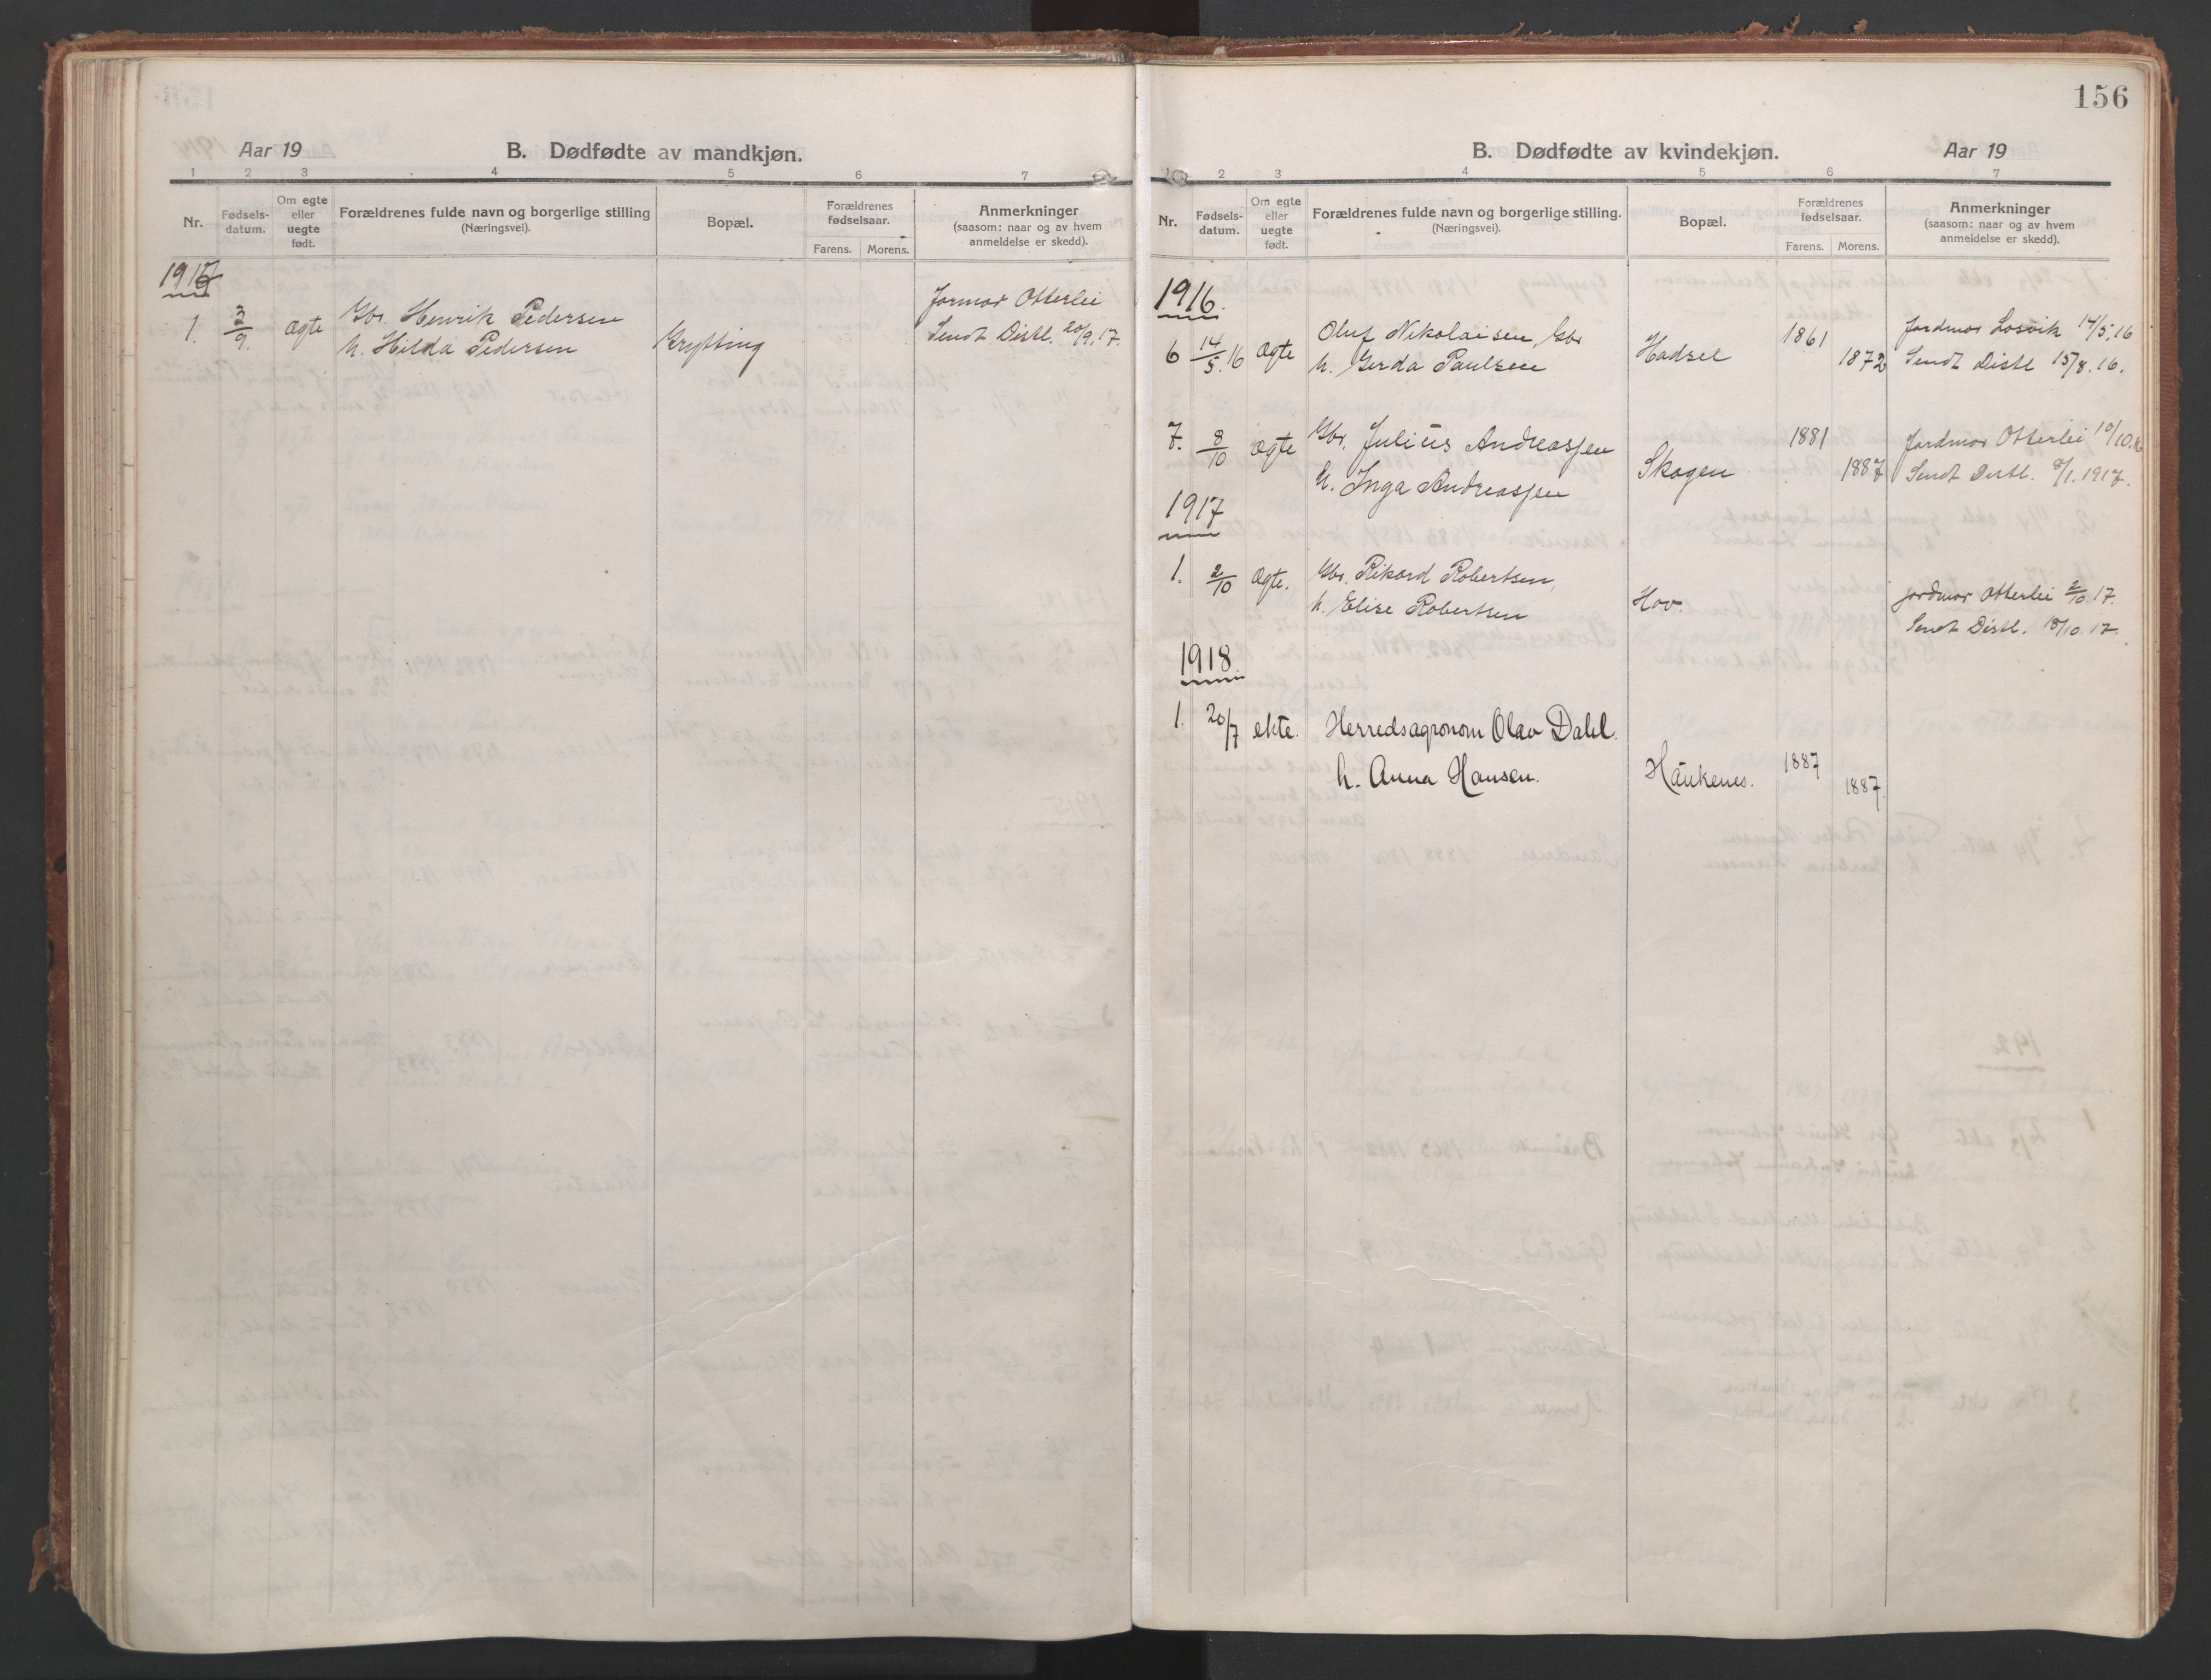 Aar 19
B. Dødfødte av mandkjøn.
1 2 3 4 5 6 7
Nr.
Fødsels-datum.
Om egte eller uegte født.
Forældrenes fulde navn og borgerlige stilling
(Næringsvei).
Bopæl.
Forældrenes fødselsaar.
Farens. Morens.
Anmerkninger
(saasom: naar og av hvem anmeldelse er skedd).
1917
1. 3/9. ægte Gbr. Henrik Pedersen
h. Hilda Pedersen
Grytting
Jormor Otterlei
Sendt Distl. 20/9.17.
156
B. Dødfødte av kvindekjøn.
Aar 19
1 2 3 4 5 6 7
Nr.
Fødsels-datum.
Om egte eller uegte født.
Forældrenes fulde navn og borgerlige stilling.
(Næringsvei).
Bopæl.
Forældrenes fødselsaar.
Farens. Morens.
Anmerkninger
(saasom: naar og av hvem anmeldelse er skedd).
1916.
6 14/5.16 ægte Oluf Nikolaisen, Gbr
h. Gerda Paulsen
Hadsel 1861 1872
Jordmor Losvik 14/5.16
Sendt Distl 15/8.16.
7. 8/10 ægte Gbr. Julius Andreassen
h. Inga Andreassen
Skogen 1881 1887
Jordmor Otterlei 10/10.16
Sendt Distl. 8/1.1917.
1917
1. 2/10 ægte. Gbr. Rikard Robertsen,
h. Elise Robertsen
Hov.
jordmor Otterlei 2/10.17.
Sendt Distl. 18/10.17.
1918.
1. 20/7 ekte. Herredsagronom Olav Dahl.
h. Anna Hansen.
Haukenes. 1887 1887.